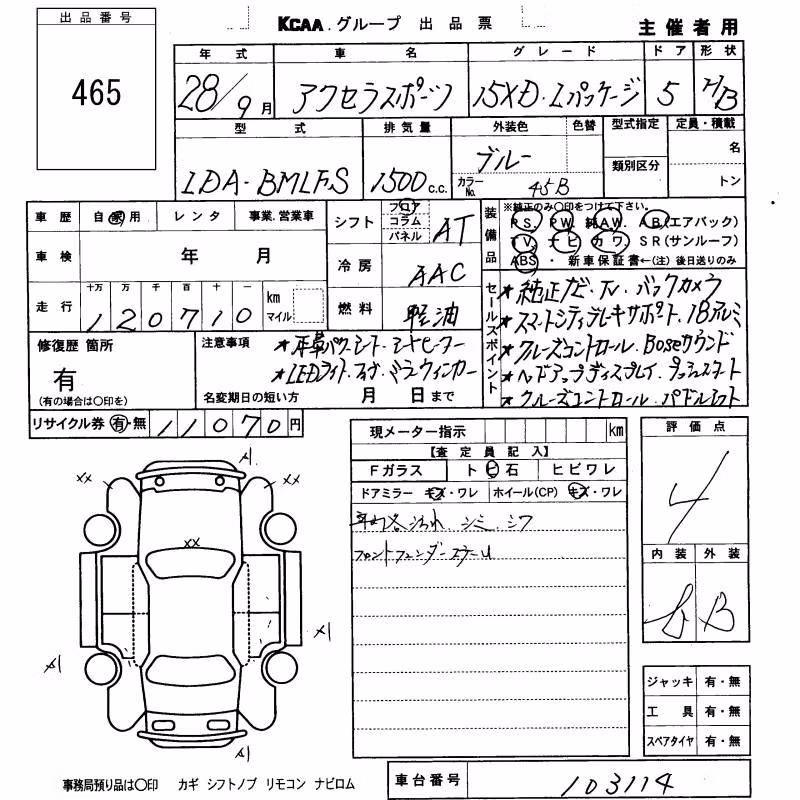 出品番号
465
KCAA.グループ 出品票
主催者用
年式 車名 グレード ドア 形状
28/9月 アクセラスポーツ 15XD・Lパッケージ 5 H/B
型式 排気量 外装色 色替 型式指定 定員・積載
LDA-BMLFS 1500c.c. ブルー
カラーNo. 45B
類別区分
名
トン
車歴 自家用 レンタ 事業.営業車
車検 年 月
走行 十万 万 千 百 十 一
120710 km マイル
シフト フロア コラム パネル AT
冷房 AAC
燃料 軽油
装備品
※純正のみ○印をつけて下さい。
PS. PW. 純AW. AB(エアバック)
TV. ナビ カワ SR(サンルーフ)
ABS ・ 新車保証書←(注)後日送りのみ
セールスポイント
★純正ナビ.TV.バックカメラ
★スマートシティブレーキサポート.18アルミ
★クルーズコントロール.Boseサウンド
★ヘッドアップディスプレイ.プッシュスタート
★クルーズコントロール.パドルシフト
修復歴 箇所
有
(有の場合は○印を)
注意事項
★牛革パワーシート.シートヒーター
★LEDライト.フォグ.ミラーウィンカー
名変期日の短い方 月 日まで
リサイクル券 有・無 11070円
現メーター指示 km
【査定員記入】
Fガラス ト ビ 石 ヒビワレ
ドアミラー キズ・ワレ ホイール(CP) キズ・ワレ
車内 汚れ.シミ.シワ
フロントフェンダー
評価点
4
内装 外装
B
xx
xx
xx
ジャッキ 有・無
工具 有・無
スペアタイヤ 有・無
事務局預り品は○印 カギ シフトノブ リモコン ナビロム
車台番号 103114